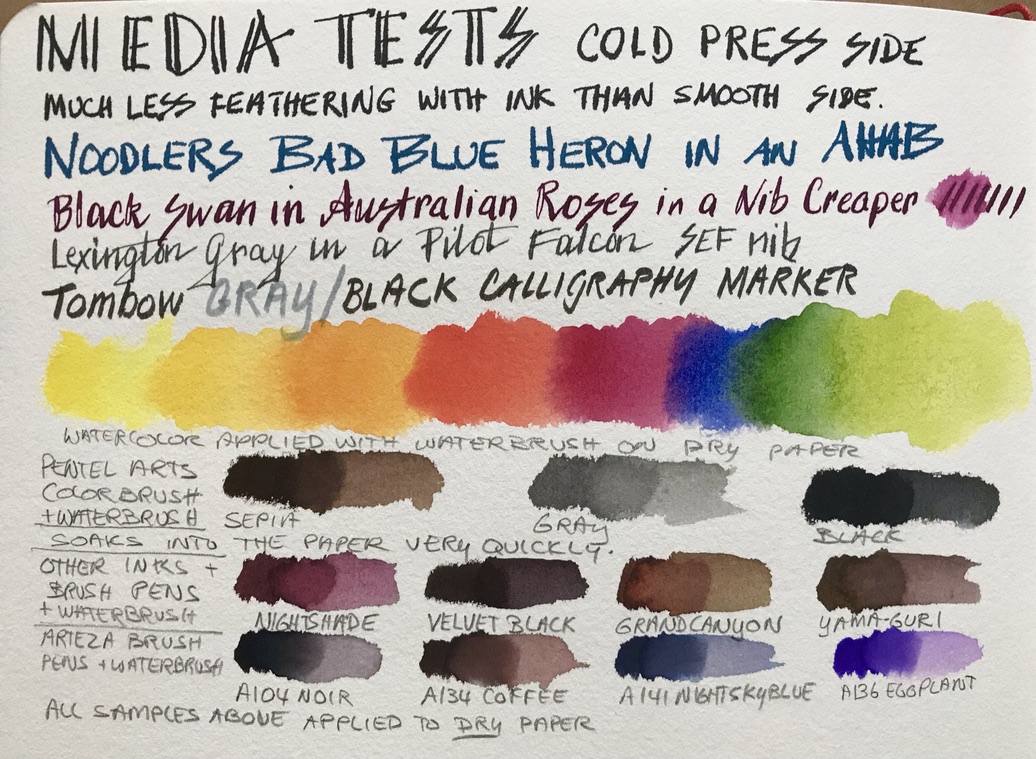 MEDIA TESTS COLD PRESS SIDE
MUCH LESS FEATHERING WITH INK THAN SMOOTH SIDE.
NOODLERS BAD BLUE HERON IN AN AHAB
Black Swan in Australian Roses in a Nib Creaper
Lexington Gray in a Pilot Falcon SEF nib
Tombow GRAY/BLACK CALLIGRAPHY MARKER
WATERCOLOR APPLIED WITH WATERBRUSH ON DRY PAPER
PENTEL ARTS
COLORBRUSH
+WATERBRUSH
SEPIA GRAY BLACK
SOAKS INTO THE PAPER VERY QUICKLY.
OTHER INKS +
BRUSH PENS
+ WATERBRUSH
NIGHTSHADE VELVET BLACK GRAND CANYON YAMA-GURI
ARTEZA BRUSH
PENS + WATERBRUSH
A104 NOIR A134 COFFEE A141 NIGHTSKYBLUE A136 EGGPLANT
ALL SAMPLES ABOVE APPLIED TO DRY PAPER